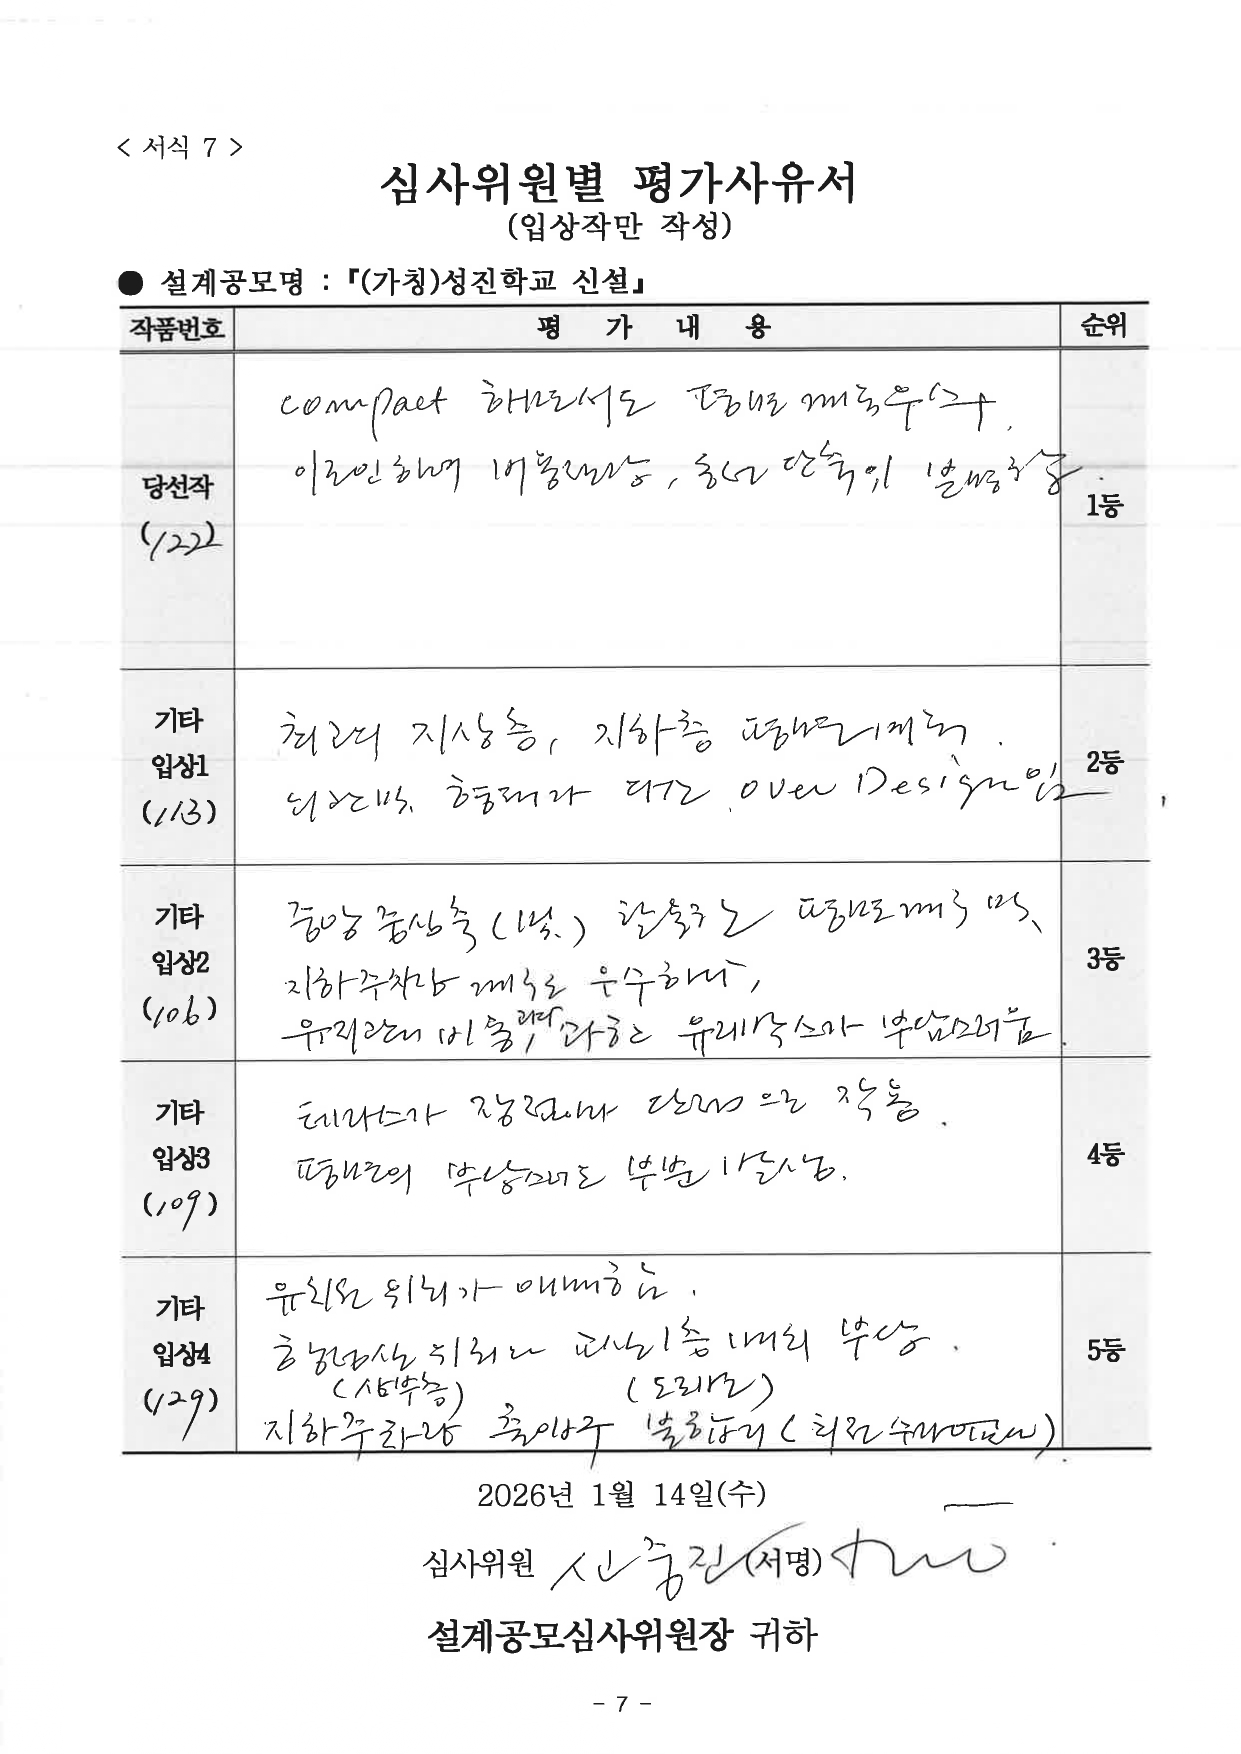 < 서식 7 >
심사위원별 평가사유서
(입상작만 작성)
● 설계공모명 : 『(가칭)성진학교 신설』
작품번호 평 가 내 용 순위
당선작
(122)
compact 하면서도 평면계획우수.
이로인하여 비용절감, 동선 단축이
1등
기타
입상1
(113)
최고의 지상층, 지하층 평면계획.
형태가 다소 over Design임
2등
기타
입상2
(106)
중앙 중심축 (1번.) 평면계획 및
지하주차장 계획은 우수하나,
유지관리 비용, 과다 과한 유리박스가 부담스러움.
3등
기타
입상3
(109)
테라스가 장점이나 단점으로 작용.
평면의 부담스러운 부분 발생.
4등
기타
입상4
(129)
유치원 위치가 애매함.
행정실 위치와 피난1층 배치 부담.
(상부층) (도래보)
지하주차장 출입구 불합리 (회전 수직이편)
5등
2026년 1월 14일(수)
심사위원 신중진 (서명)
설계공모심사위원장 귀하
- 7 -